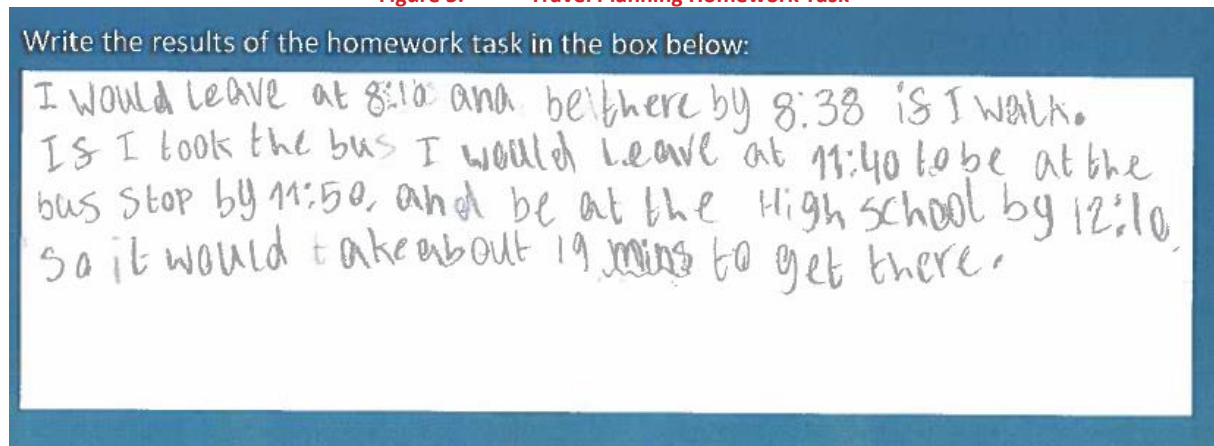 Write the results of the homework task in the box below:
I would leave at 8:10 and be there by 8:38 is I walk.
Is I took the bus I would leave at 11:40 to be at the
bus stop by 11:50, and be at the High school by 12:10,
so it would take about 19 mins to get there.